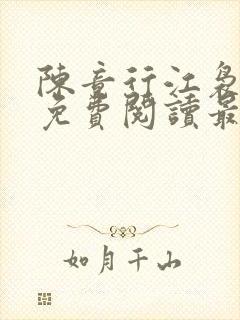 陳音行江袅
免費閱讀最
如月千山